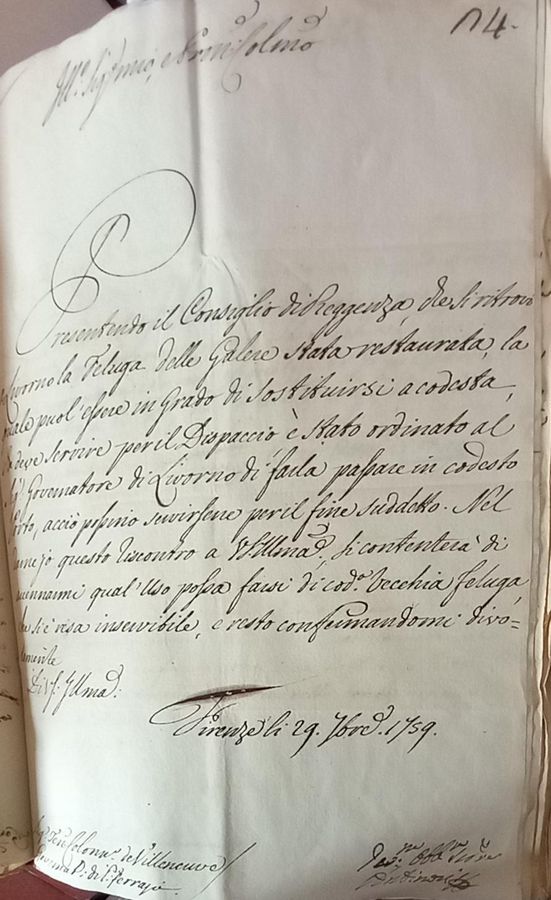 Ill.º Sig.r mio, e Pron Colmo
Presentendo il Consiglio di Reggenza, che si ritrova
Livorno la Feluga delle Galere stata restaurata, la
quale puol'essere in grado di sostituirsi a codesta,
deve servire per il Dispaccio è stato ordinato al
Governatore di Livorno di farla passare in codesto
Porto, acciò possino servirsene per il fine suddetto. Nel
questo riscontro a VS Illma, si contenterà di
accennarmi qual'Uso possa farsi di cod.ª Vecchia Feluga,
che si è resa inservibile, e resto confermandomi divo=
tamente
Di VS. Illma:
Firenze li 29. 7bre. 1759.
Sig.r Ten.e Colonn.º de Villeneuve
di P.º Ferrajo
Dev.mo Obb.mo Ser.re